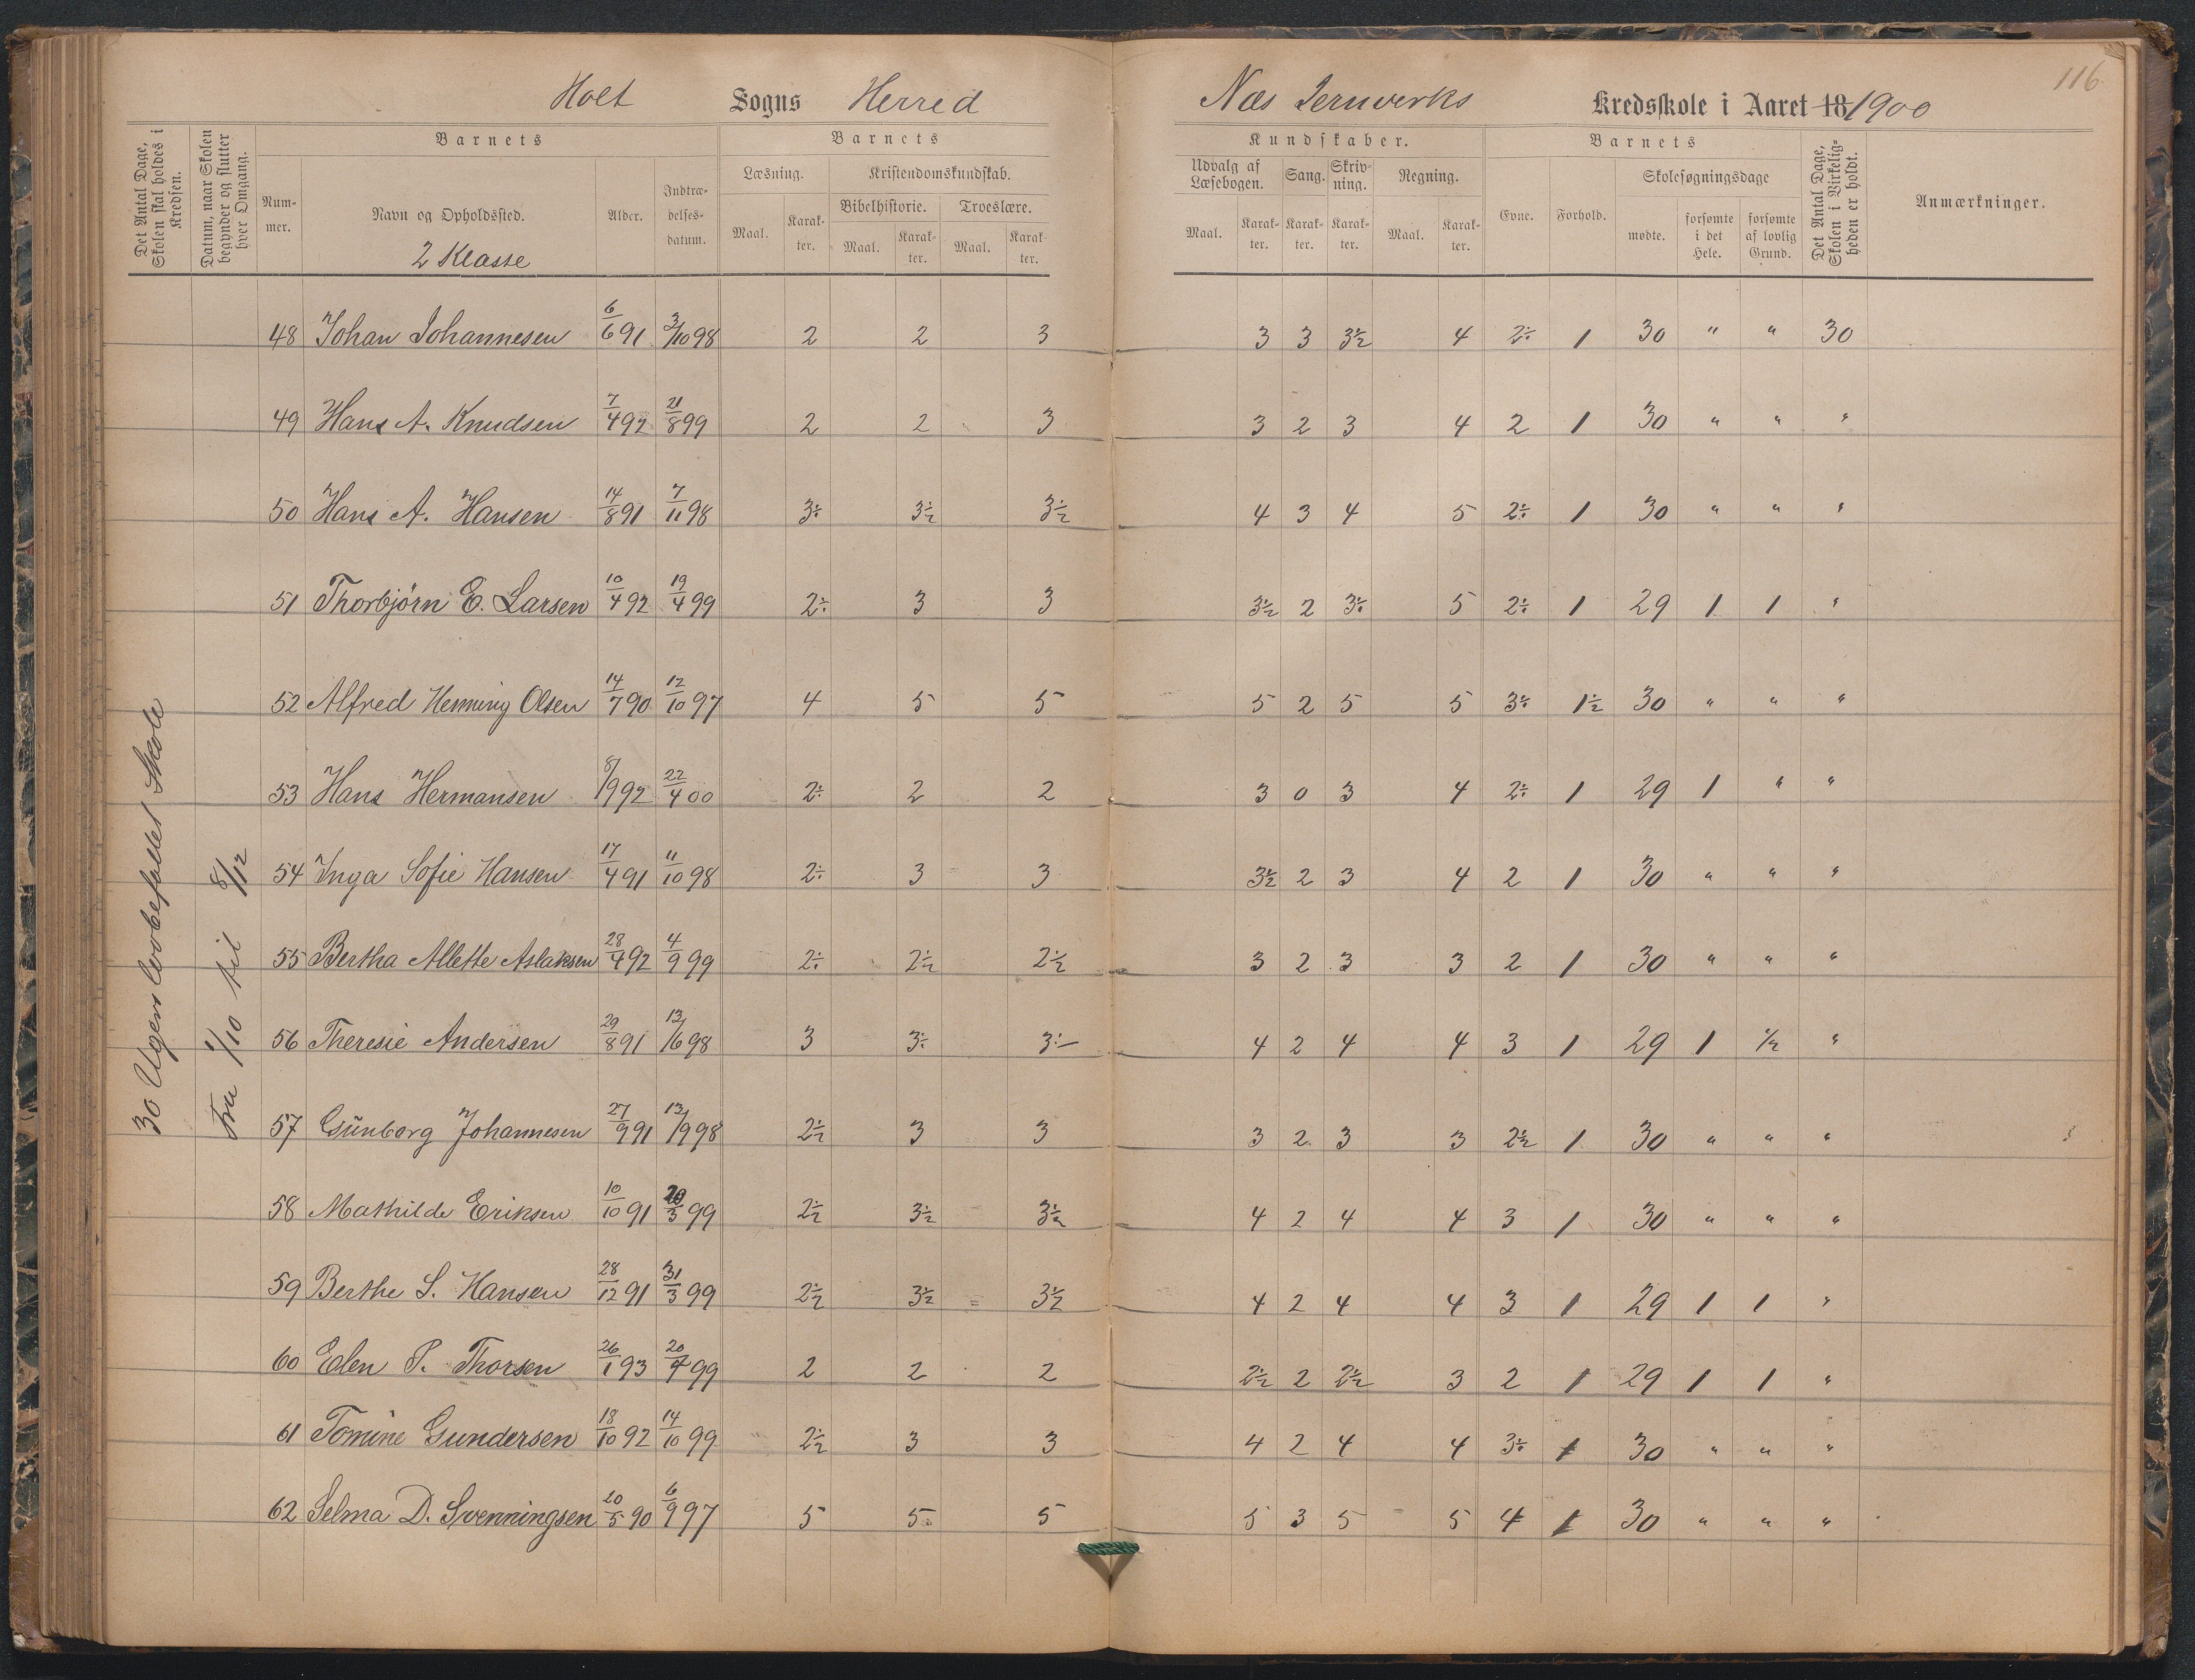 116
Holt Sogns Herred Næs Jernverks Kredsskole i Aaret 18 1900
Det Antal Dage, Skolen skal holdes i Kredsen.
Datum, naar Skolen begynder og slutter hver Omgang.
Barnets
Nummer.
Navn og Opholdssted.
2 Klasse
Alder.
Indtrædelsesdatum.
Barnets
Læsning.
Maal. Karakter.
Kristendomskundskab.
Bibelhistorie. Troeslære.
Maal. Karakter. Maal. Karakter.
Kundskaber.
Udvalg af Læsebogen. Sang. Skrivning. Regning.
Maal. Karakter. Karakter. Karakter. Maal. Karakter.
Barnets
Evne. Forhold.
Skolesøgningsdage
mødte. forsømte i det Hele. forsømte af lovlig Grund.
Det Antal Dage, Skolen i Virkeligheden er holdt.
Anmærkninger.
30 Ugers lovbefallet Skole
Fra 1/10 til 8/12
48 Johan Johannesen 6/6 91 3/10 98 2 2 3 3 3 3½ 4 2÷ 1 30 " " 30
49 Hans A. Knudsen 7/4 92 21/8 99 2 2 3 3 2 3 4 2 1 30 " " "
50 Hans A. Hansen 14/8 91 7/11 98 3÷ 3½ 3½ 4 3 4 5 2÷ 1 30 " " "
51 Thorbjørn E. Larsen 10/4 92 19/4 99 2÷ 3 3 3½ 2 3÷ 5 2÷ 1 29 1 1 "
52 Alfred Henning Olsen 14/7 90 12/10 97 4 5 5 5 2 5 5 3÷ 1½ 30 " " "
53 Hans Hermansen 8/9 92 22/4 00 2÷ 2 2 3 0 3 4 2÷ 1 29 1 " "
54 Inga Sofie Hansen 17/4 91 11/10 98 2÷ 3 3 3½ 2 3 4 2 1 30 " " "
55 Bertha Allette Aslaksen 28/4 92 4/9 99 2÷ 2½ 2½ 3 2 3 3 2 1 30 " " "
56 Theresie Andersen 29/8 91 13/6 98 3 3÷ 3÷ 4 2 4 4 3 1 29 1 ½ "
57 Günborg Johannesen 27/9 91 13/9 98 2½ 3 3 3 2 3 3 2½ 1 30 " " "
58 Mathilde Eriksen 10/10 91 20/3 99 2½ 3½ 3½ 4 2 4 4 3 1 30 " " "
59 Berthe S. Hansen 28/12 91 31/3 99 2½ 3½ 3½ 4 2 4 4 3 1 29 1 1 "
60 Elen P. Thorsen 26/1 93 20/4 99 2 2 2 2½ 2 2½ 3 2 1 29 1 1 "
61 Tomine Gundersen 18/10 92 14/10 99 2½ 3 3 4 2 4 4 3÷ 1 30 " " "
62 Selma D. Svenningsen 20/5 90 6/9 97 5 5 5 5 3 5 5 4 1 30 " " "